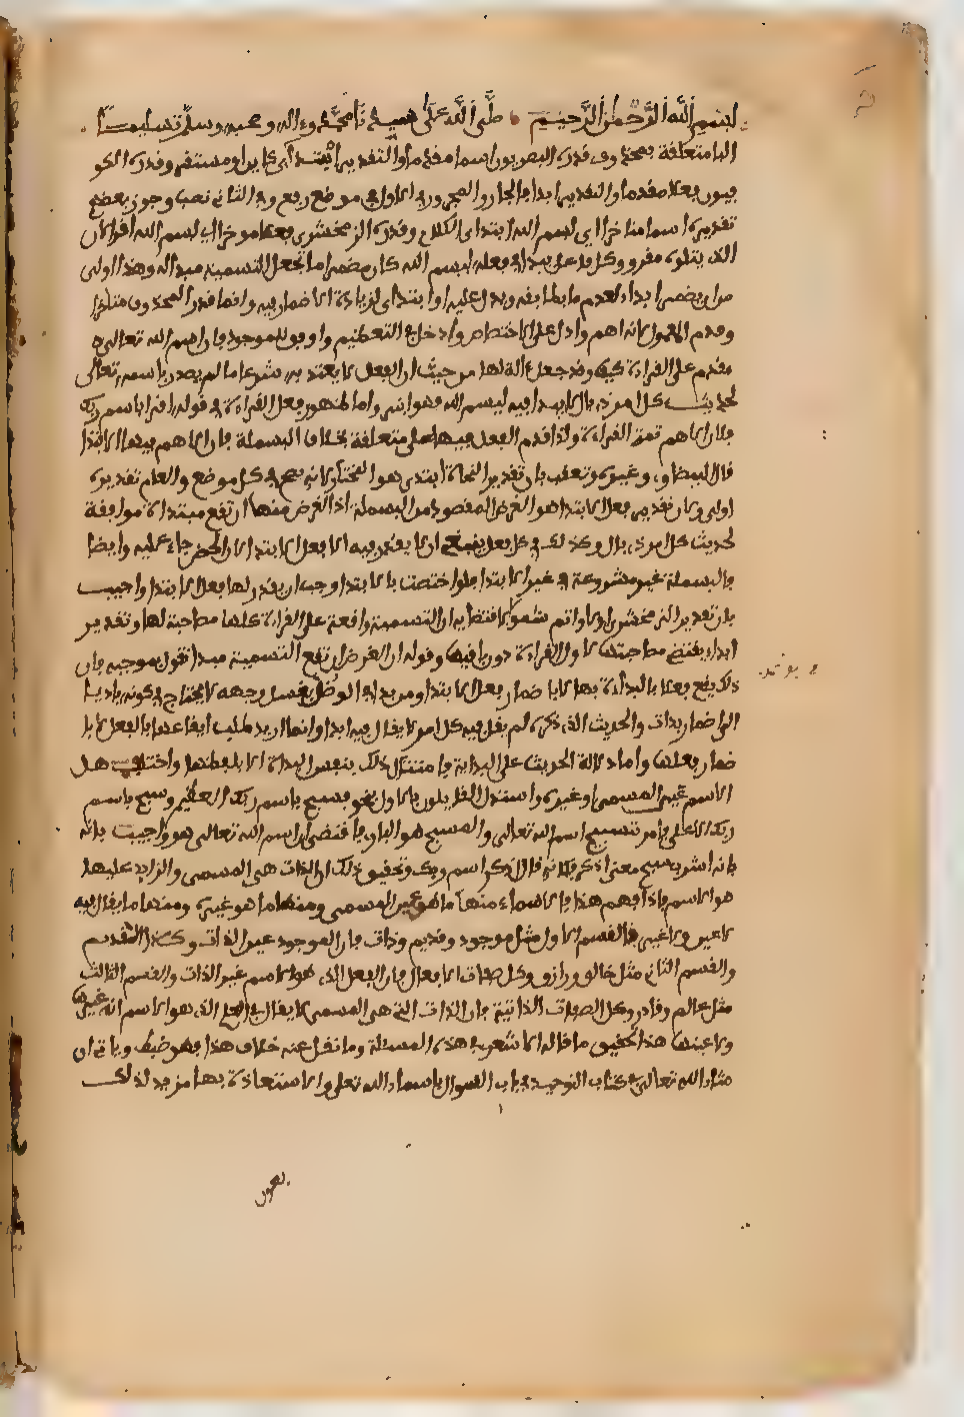 بسم الله الرحمن الرحيم صلى الله على سيدنا محمد وءاله وصحبه وسلم تسليما
الباء متعلقة بمحذوف قدره البصريون اسما مقدما والتقدير ابتدائي كاين او مستقر وقدره الكو
فيون فعلا مقدما والتقدير ابدا فالجار والمجرور في الاول في موضع رفع وفي الثاني نصب وجوز بعضهم
تقديره اسما متاخرا اي بسم الله ابتداي الكلام وقدره الزمخشري فعلا موخرا اي بسم الله اقرا لان
الذي يتلوه مقرو وكل فاعل يبدا في فعله ببسم الله كان مضمرا ما تجعل التسمية مبدا له وهذا اولى
من ان يضمر ابدا لعدم ما يطابقه ويدل عليه او ابتداي لزيادة الاضمار فيه وانما قدر المحذوف متاخرا
وقدم المعمول لانه اهم وادل على الاختصاص وادخل في التعظيم واوفق للموجود فان اسم الله تعالى
مقدم على القراءة كيف وقد جعل ءالة لها من حيث ان الفعل لا يعتد به شرعا ما لم يصدر باسمه تعالى
لحديث كل امر ذي بال لا يبدا فيه ببسم الله فهو ابتر واما ظهور فعل القراءة في قوله اقرا باسم ربك
فلان الاهم ثمة القراءة ولذا قدم الفعل فيها على متعلقه بخلاف البسملة فان الاهم فيها الابتدا
قاله البيضاوي وغيره وتعقب بان تقدير النحاة ابتدي هو المختار لانه يصح في كل موضع والعام تقديره
اولى ولان تقدير فعل الابتدا هو الغرض المقصود من البسملة اذ الغرض منها ان تقع مبتداة موافقة
لحديث كل امر ذي بال وكذلك في كل فعل ينبغي ان لا يقدر فيه الا فعل الابتدا لان الحض جاء عليه وايضا
فالبسملة غير مشروعة في غير الابتدا فلو اختصت بالابتدا وجب ان يقدر لها فعل الابتدا واجيب
بان تقدير الزمخشري اولى واتم شمولا لاقتضايه ان التسمية واقعة على القراءة كلها مصاحبة لها وتقدير
ابدا يقتضي مصاحبتها لاول القراءة دون باقيها وقوله ان الغرض ان تقع التسمية مبدا نقول بموجبه فان
ذلك يقع فعلا بالبداءة بها لا باضمار فعل الابتدا ومن بدا في الوضوء بغسل وجهه لا يحتاج في كونه باديا
الى اضمار بدات والحديث الذي ذكره لم يقل فيه كل امر لا يقال فيه ابدا وانما اريد طلب ايقاعها بالفعل لا با
ضمار فعلها واما دلالة الحديث على البداية فامتثال ذلك بنفس البداءة لا بلفظها واختلف هل
الاسم عين المسمى او غيره واستدل القايلون بالاول بنحو فسبح باسم ربك العظيم وسبح باسم
ربك الاعلى فامر بتسبيح اسم الله تعالى والمسبح هو الباري فاقتضى ان اسم الله تعالى هو هو واجيب بانه
بانه اشرب سبح معنى اذكر فكانه قال اذكر اسم ربك وتحقيق ذلك ان الذات هي المسمى والزايد عليها
هو الاسم فاذا فهم هذا فالاسماء منها ما هو عين المسمى ومنها ما هو غيره ومنها ما يقال فيه
لا عين ولا غير فالقسم الاول مثل موجود وقديم وذات فان الموجود عين الذات وكذا القديم
والقسم الثاني مثل خالق ورازق وكل صفات الافعال فان الفعل الذي هو الاسم غير الذات والقسم الثالث
مثل عالم وقادر وكل الصفات الذاتية فان الذات التي هي المسمى لا يقال في العلم الذي هو الاسم انه غيرها
ولا عينها هذا تحقيق ما قاله الاشعري في هذه المسئلة وما نقل عنه خلاف هذا فهو خبط وياتي ان
شاء الله تعالى في كتاب التوحيد في باب السوال باسماء الله تعالى والاستعاذة بها مزيد لذلك